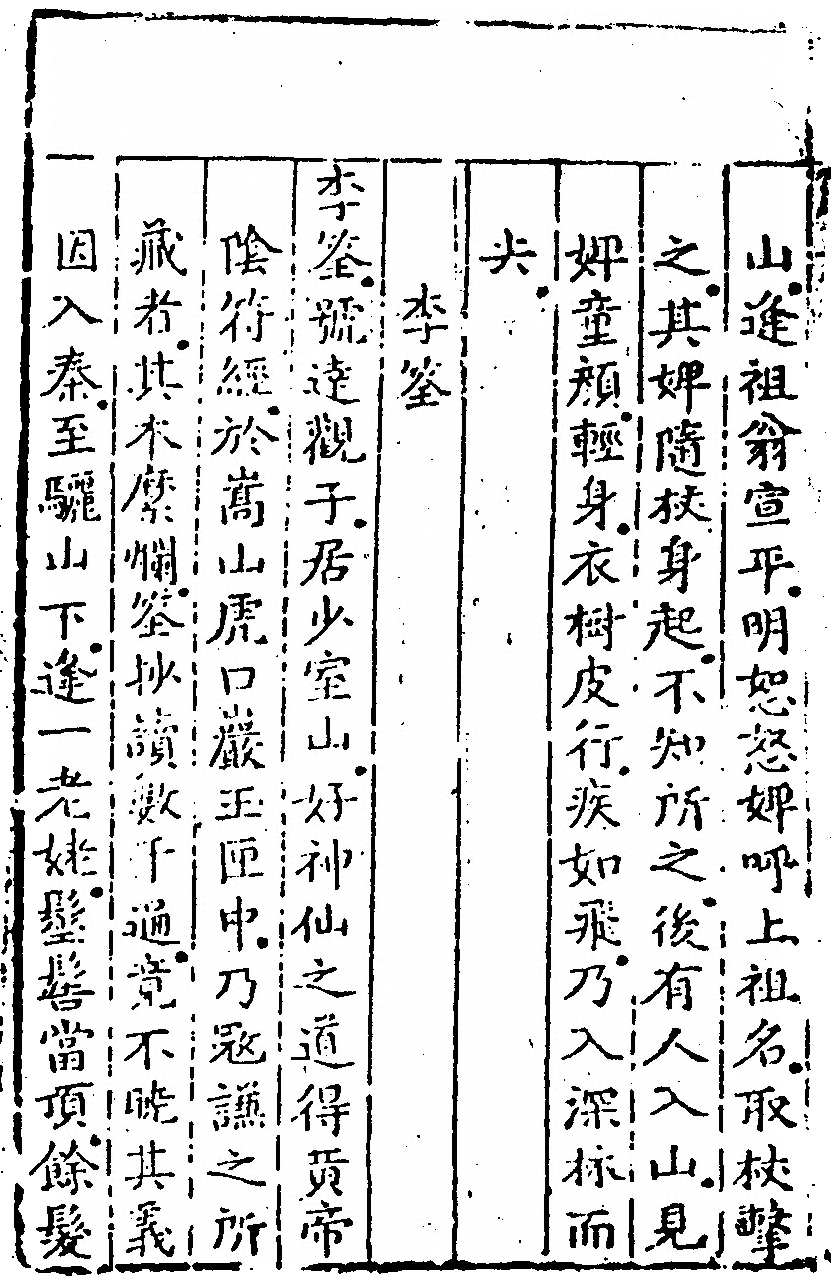 山逢祖翁宣平明恕怒婢呼上祖名取杖擊
之其婢隨杖身起不知所之後有人入山見
婢童顏輕身衣樹皮行疾如飛乃入深林而
去
李筌
李筌號達觀子居少室山好神仙之道得黃帝
陰符經於嵩山虎口巖玉匣中乃寇謙之所
藏者其本糜爛筌抄讀數千遍竟不曉其義
因入秦至驪山下逢一老姥髽髻當頂餘髮